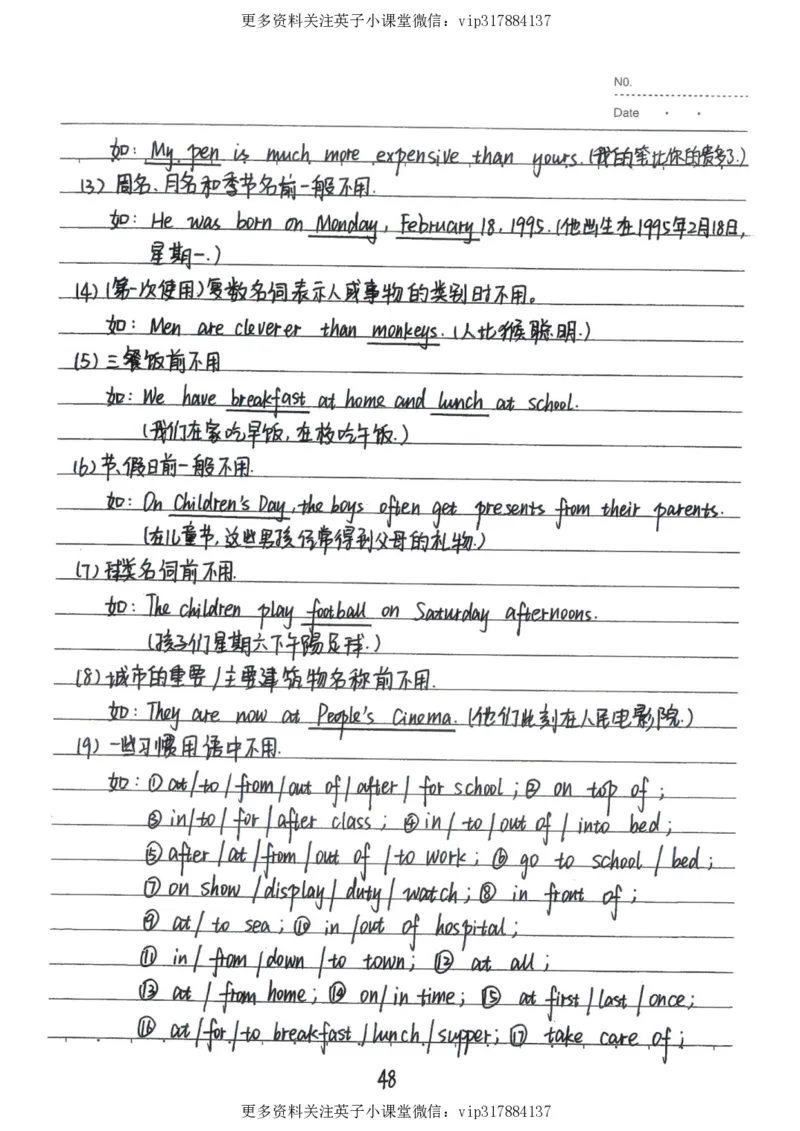 更多资料关注英子小课堂微信：vip317884137
NO.
Date
如：My pen is much more expensive than yours.(我的笔比你的贵多了.)
(3) 周名、月名和季节名前一般不用.
如：He was born on Monday, February 18, 1995.(他出生在1995年2月18日,
星期一.)
(4) (第一次使用)复数名词表示人或事物的类别时不用。
如：Men are cleverer than monkeys.(人比猴聪明.)
(5) 三餐饭前不用
如：We have breakfast at home and lunch at school.
(我们在家吃早饭,在校吃午饭.)
(6) 节、假日前一般不用.
如：On Children's Day, the boys often get presents from their parents.
(在儿童节,这些男孩经常得到父母的礼物.)
(7) 球类名词前不用.
如：The children play football on Saturday afternoons.
(孩子们星期六下午踢足球.)
(8) 城市的重要/主要建筑物名称前不用.
如：They are now at People's Cinema.(他们此刻在人民电影院.)
(9) 一些习惯用语中不用.
如：① at/to/from/out of/after/for school; ② on top of;
③ in/to/for/after class; ④ in/to/out of/into bed;
⑤ after/at/from/out of/to work; ⑥ go to school/bed;
⑦ on show/display/duty/watch; ⑧ in front of;
⑨ at/to sea; ⑩ in/out of hospital;
⑪ in/from/down/to town; ⑫ at all;
⑬ at/from home; ⑭ on/in time; ⑮ at first/last/once;
⑯ at/for/to breakfast/lunch/supper; ⑰ take care of;
48
更多资料关注英子小课堂微信：vip317884137